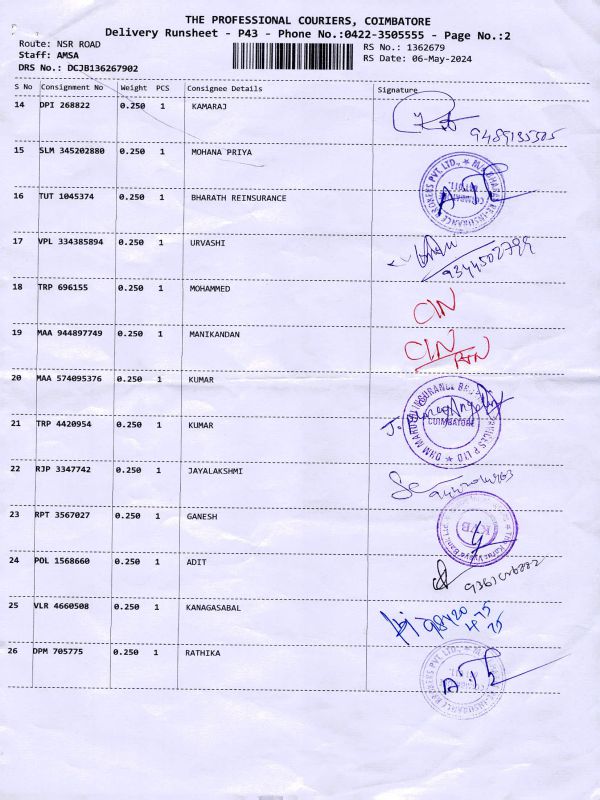 THE PROFESSIONAL COURIERS, COIMBATORE
Delivery Runsheet - P43 - Phone No.:0422-3505555 - Page No.:2
Route: NSR ROAD
RS No.: 1362679
Staff: AMSA
RS Date: 06-May-2024
DRS No.: DCJB136267902
S No Consignment No Weight PCS Consignee Details Signature
14 DPI 268822 0.250 1 KAMARAJ
9489135505
15 SLM 345202880 0.250 1 MOHANA PRIYA
16 TUT 1045374 0.250 1 BHARATH REINSURANCE
17 VPL 334385894 0.250 1 URVASHI
9344502799
18 TRP 696155 0.250 1 MOHAMMED
CIN
19 MAA 944897749 0.250 1 MANIKANDAN
CIN
20 MAA 574095376 0.250 1 KUMAR
COIMBATORE
21 TRP 4420954 0.250 1 KUMAR
22 RJP 3347742 0.250 1 JAYALAKSHMI
23 RPT 3567027 0.250 1 GANESH
KVB
24 POL 1568660 0.250 1 ADIT
25 VLR 4660508 0.250 1 KANAGASABAL
26 DPM 705775 0.250 1 RATHIKA